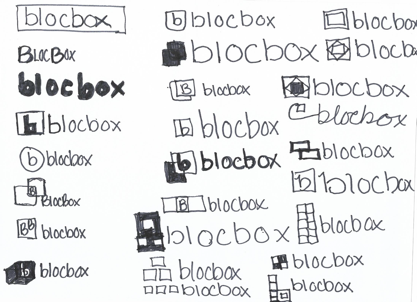 blocbox
BlocBox
blocbox
b blocbox
b blocbox
B blocbox
BB blocbox
b blocbox
b blocbox
blocbox
B blocbox
b blocbox
b blocbox
B blocbox
blocbox
blocbox
blocbox
blocbox
blocbo
blocbox
blocbox
blocbox
b blocbox
blocbox
blocbox
blocbox